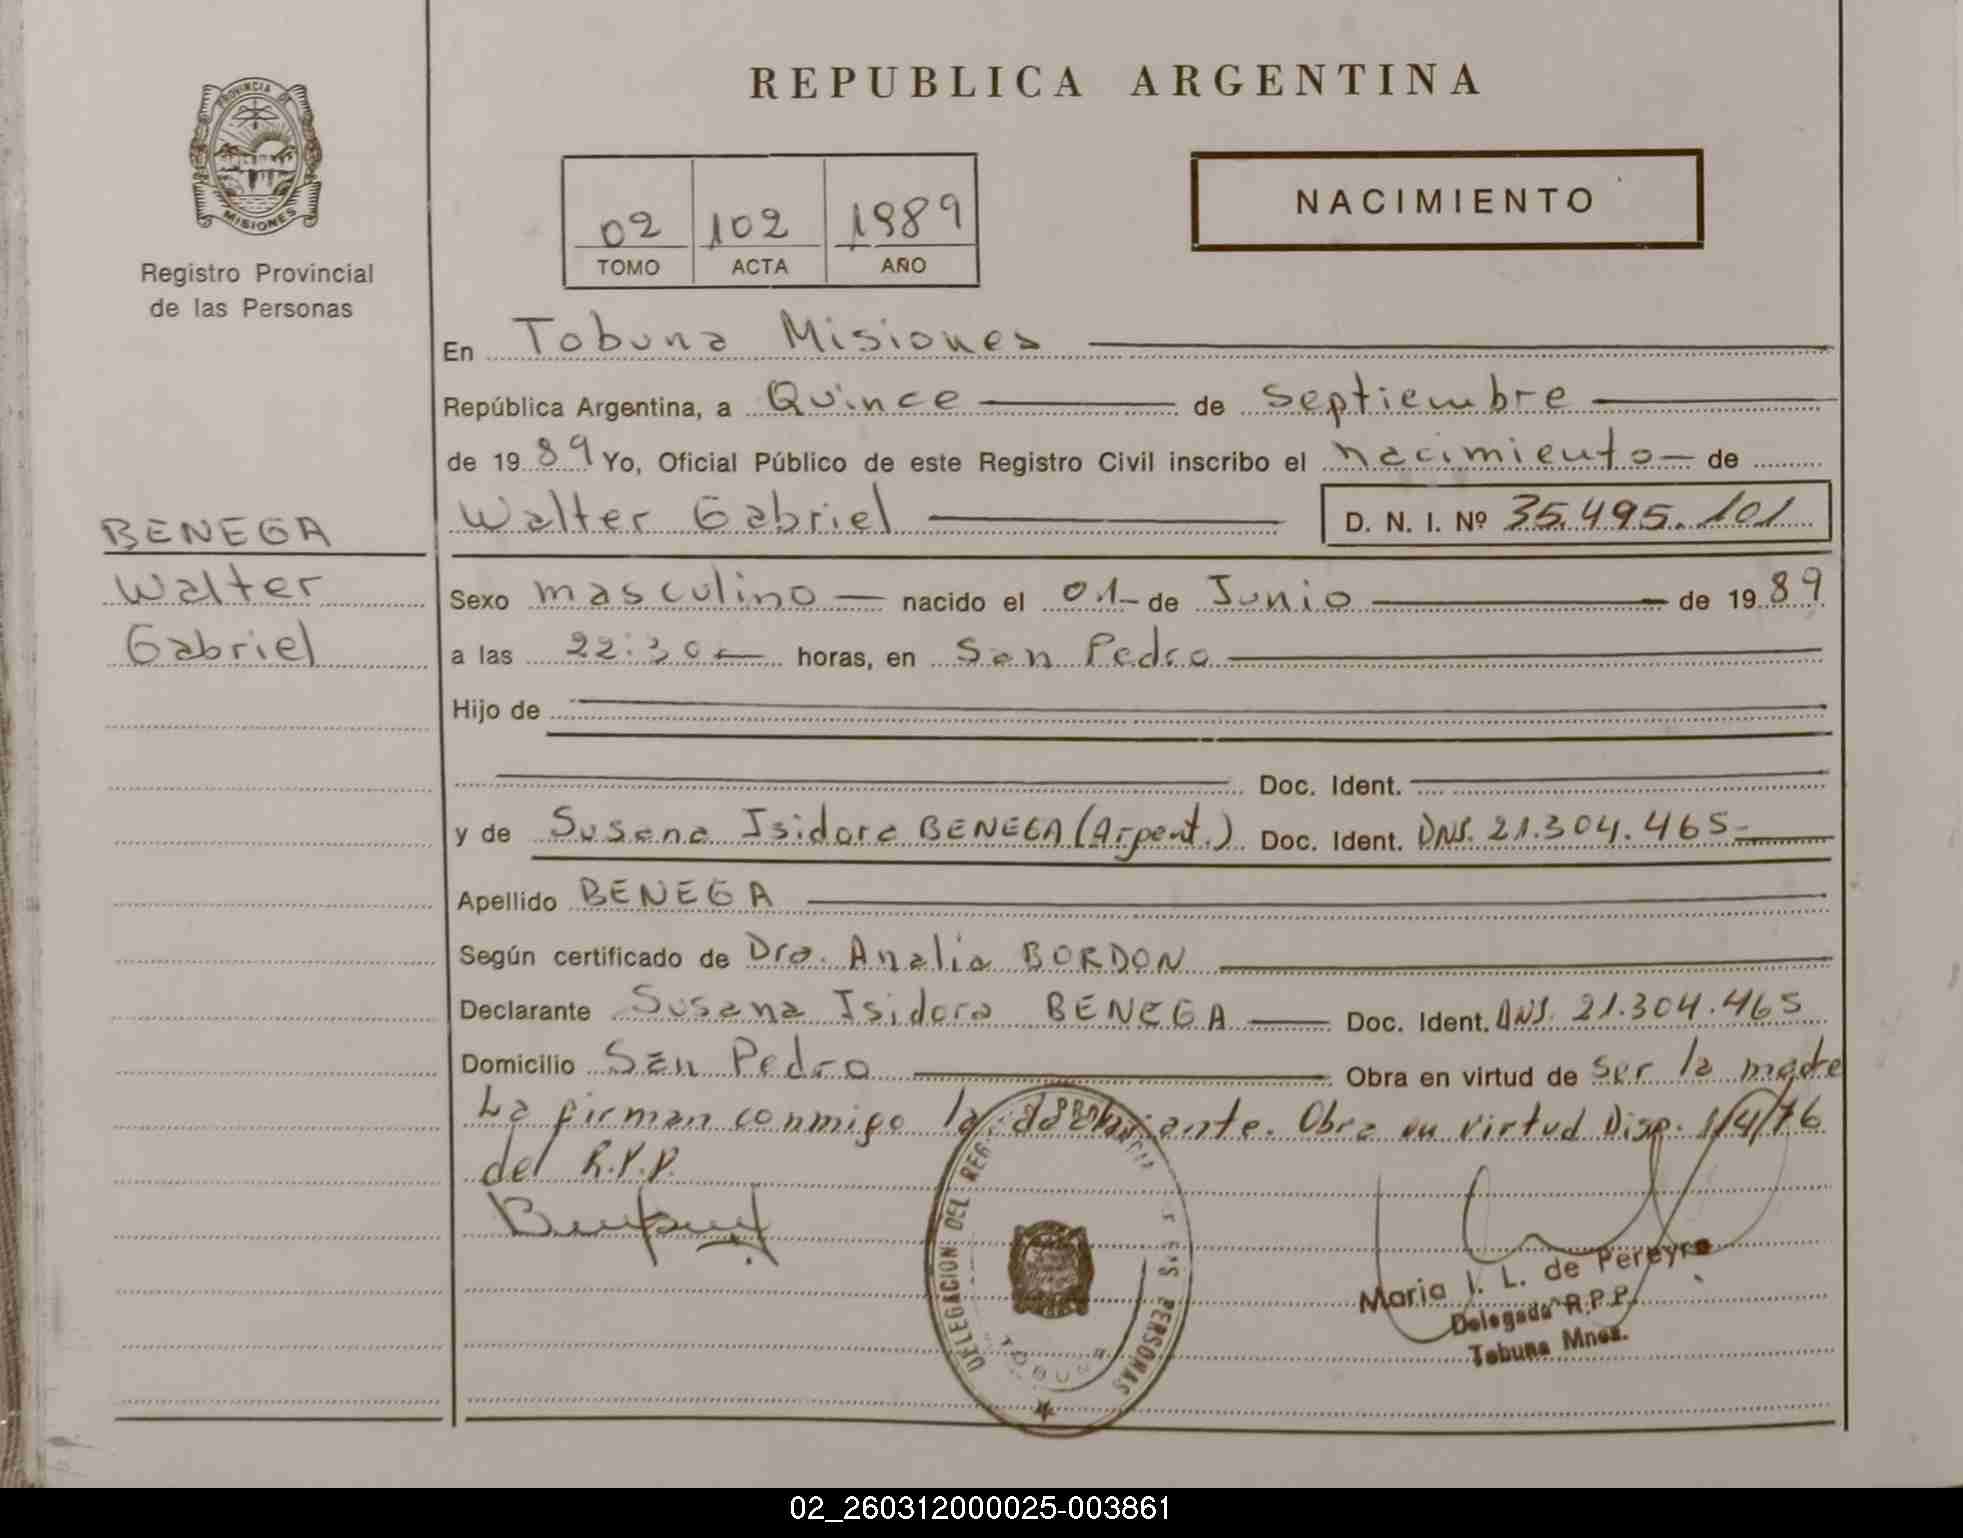 REPUBLICA ARGENTINA
PROVINCIA DE
MISIONES
Registro Provincial
de las Personas
02 102 1989
TOMO ACTA AÑO
NACIMIENTO
En Tobuna Misiones
República Argentina, a Quince de Septiembre
de 1989 Yo, Oficial Público de este Registro Civil inscribo el nacimiento de
Walter Gabriel D. N. I. Nº 35.495.101
BENEGA
Walter
Gabriel
Sexo masculino nacido el 01 de Junio de 1989
a las 22:30 horas, en San Pedro
Hijo de
Doc. Ident.
y de Susana Isidora BENEGA (Argent.) Doc. Ident. DNI. 21.304.465
Apellido BENEGA
Según certificado de Dra. Analia BORDON
Declarante Susana Isidora BENEGA Doc. Ident. DNI. 21.304.465
Domicilio San Pedro Obra en virtud de ser la madre
La firman conmigo la declarante. Obra en virtud Disp. 1/4/76
del R.P.P.
DELEGACION DEL REG
PERSONAS
TOBUNA
Maria I. L. de Pereyra
Delegada R.P.P.
Tobuna Mnes.
02_260312000025-003861